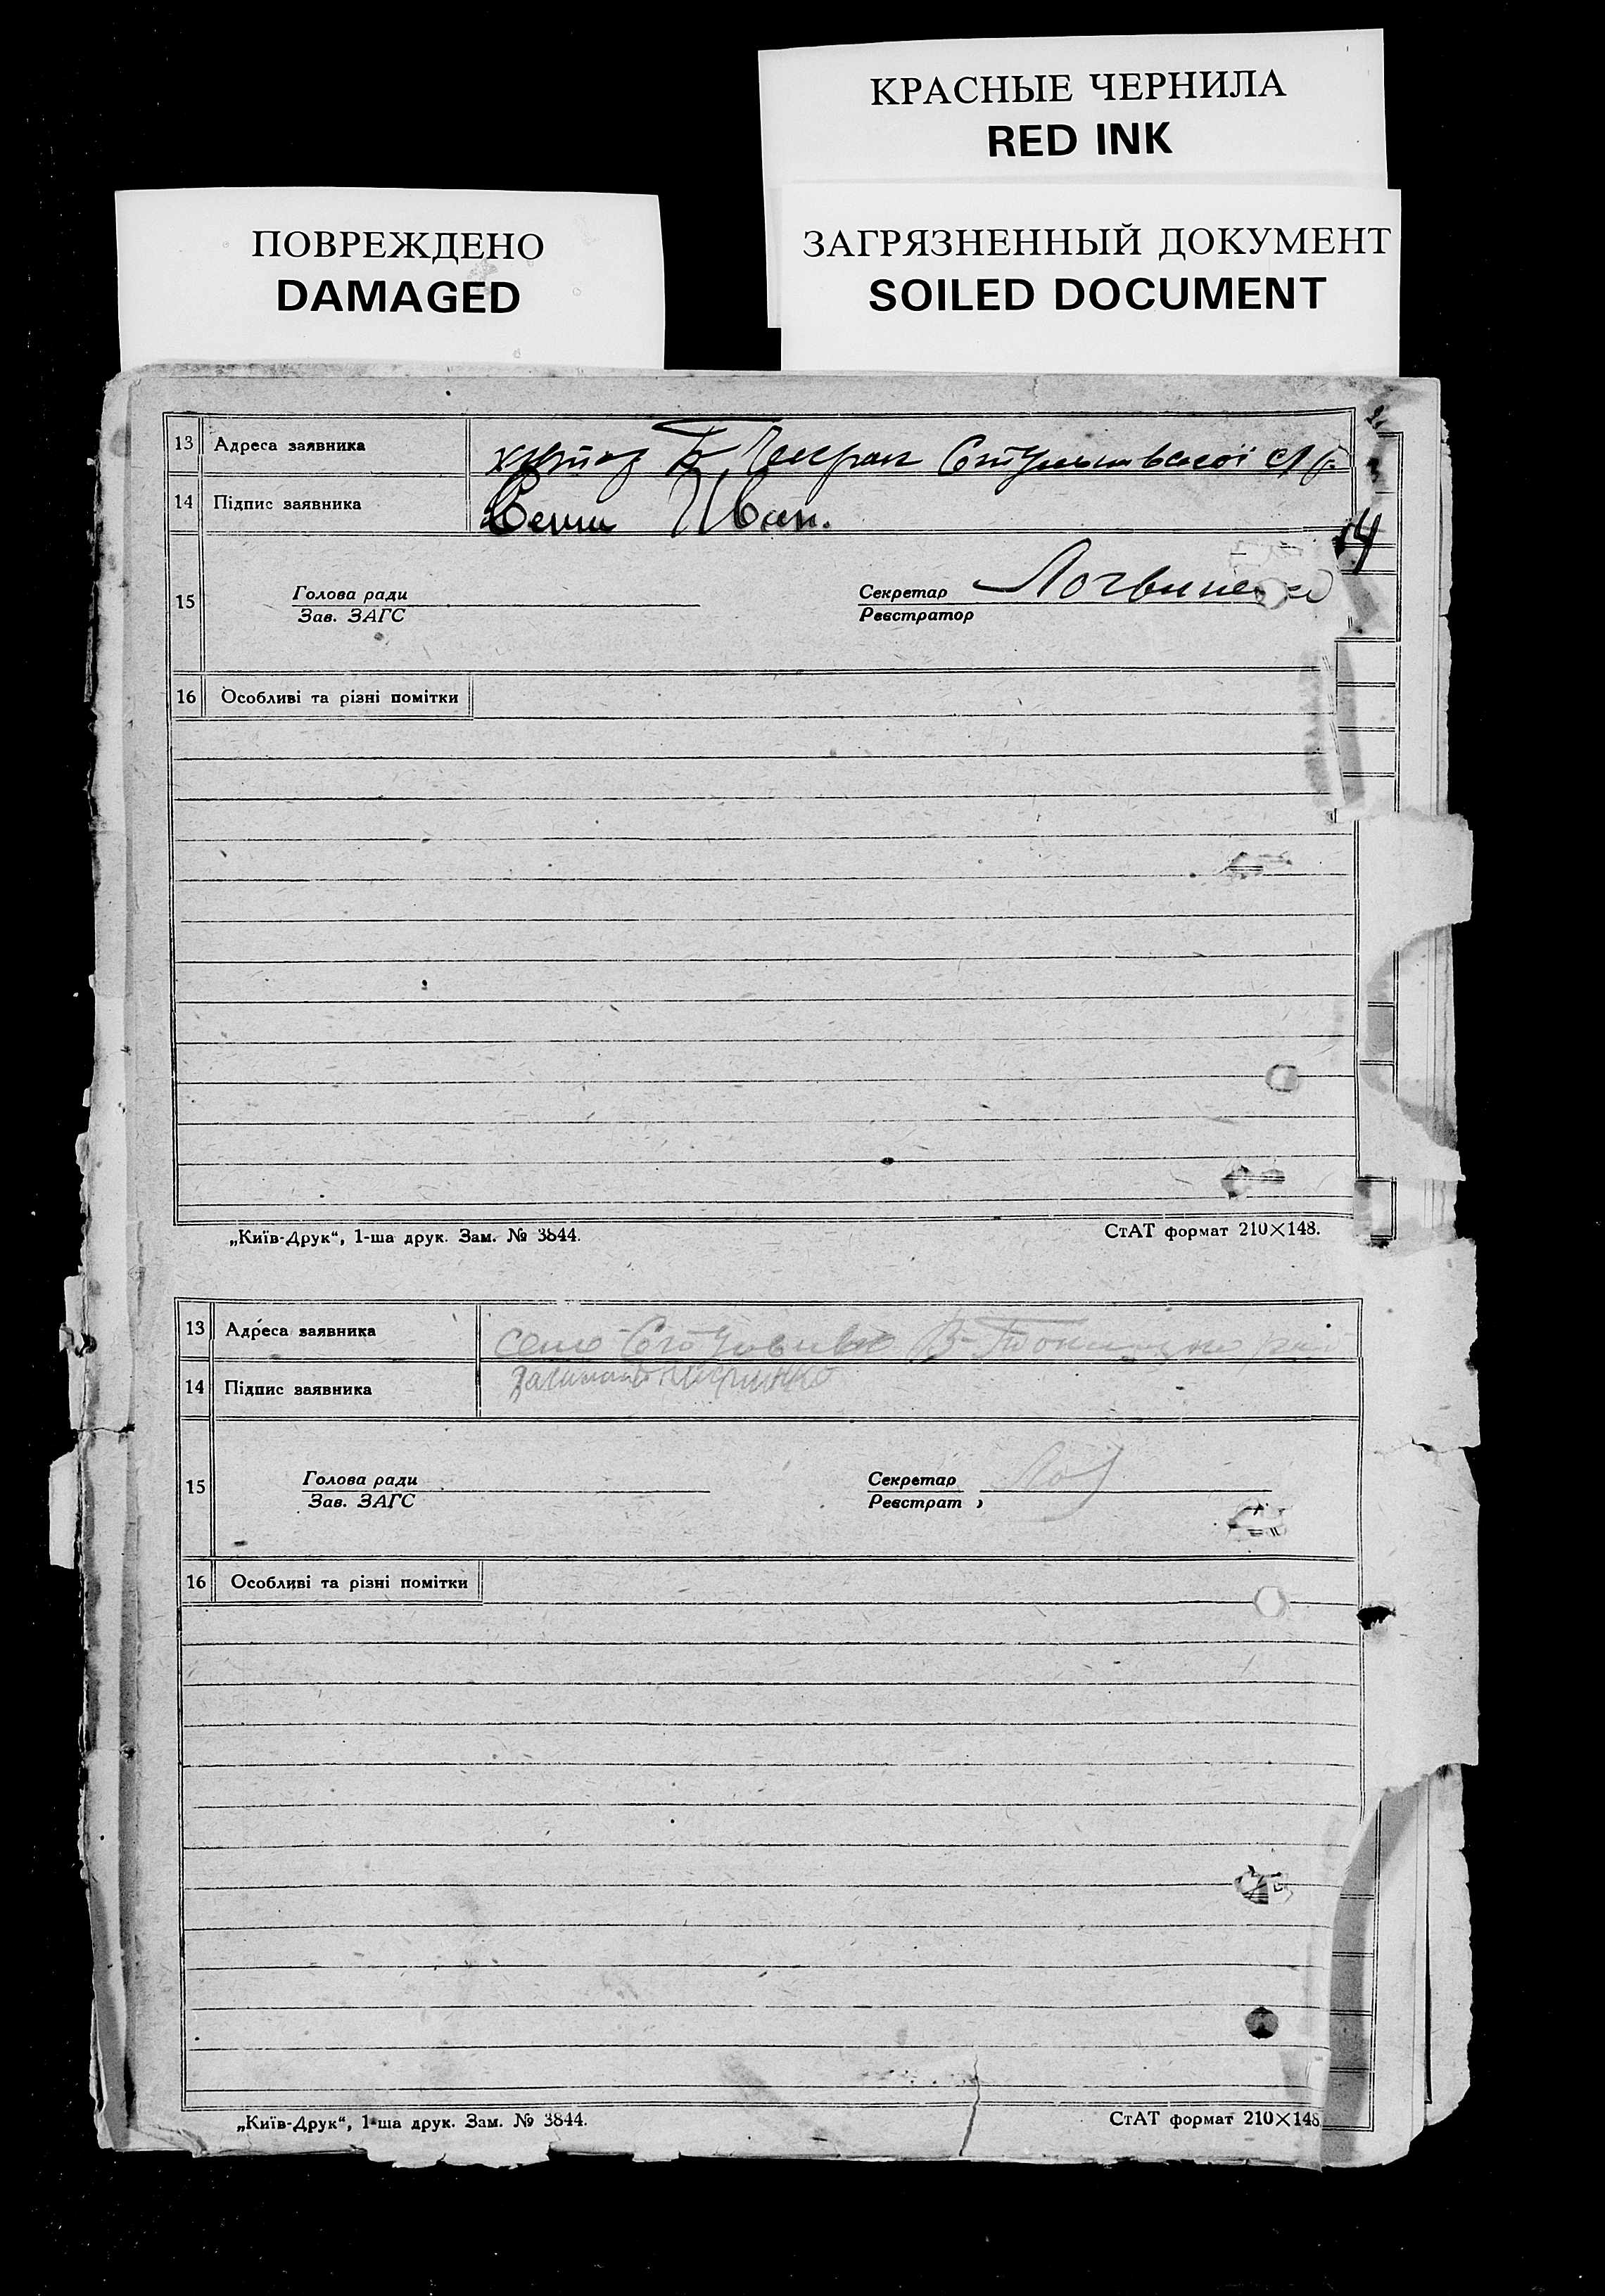 КРАСНЫЕ ЧЕРНИЛА
RED INK
ПОВРЕЖДЕНО
DAMAGED
ЗАГРЯЗНЕННЫЙ ДОКУМЕНТ
SOILED DOCUMENT
13 Адреса заявника хутор
14 Підпис заявника Іван.
14
15 Голова ради Секретар Логвиненко
Зав. ЗАГС Реєстратор
16 Особливі та різні помітки
„Київ-Друк“, 1-ша друк. Зам. № 3844. СтАТ формат 210×148.
13 Адреса заявника село
14 Підпис заявника
15 Голова ради Секретар
Зав. ЗАГС Реєстрат
16 Особливі та різні помітки
„Київ-Друк“, 1-ша друк. Зам. № 3844. СтАТ формат 210×148